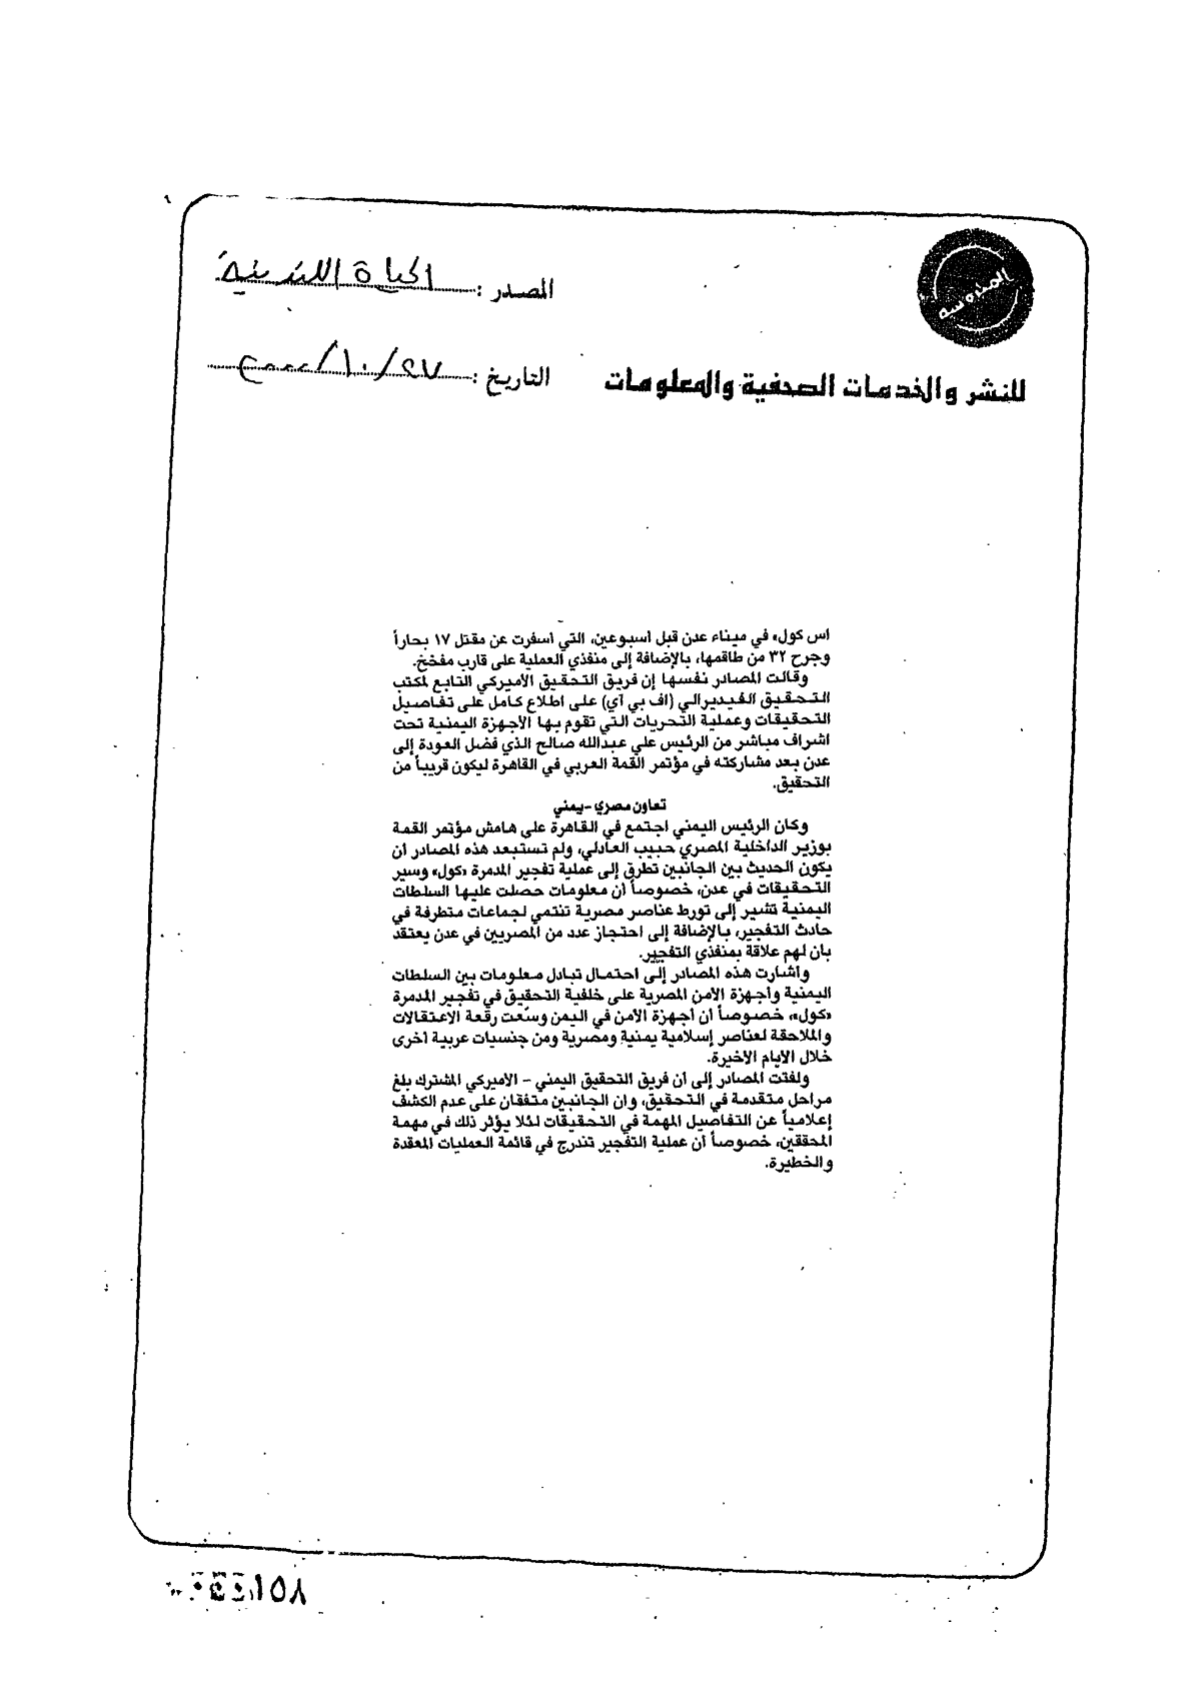 المصدر : الحياة اللندنية
التاريخ : ٢٧/١٠/٢٠٠٠
للنشر والخدمات الصحفية والمعلومات
اس كول» في ميناء عدن قبل اسبوعين، التي اسفرت عن مقتل ١٧ بحاراً
وجرح ٣٢ من طاقمها، بالإضافة إلى منفذي العملية على قارب مفخخ.
وقالت المصادر نفسها إن فريق التحقيق الأميركي التابع لمكتب
التحقيق الفيديرالي (اف بي آي) على اطلاع كامل على تفاصيل
التحقيقات وعملية التحريات التي تقوم بها الأجهزة اليمنية تحت
اشراف مباشر من الرئيس علي عبدالله صالح الذي فضل العودة إلى
عدن بعد مشاركته في مؤتمر القمة العربي في القاهرة ليكون قريباً من
التحقيق.
تعاون مصري-يمني
وكان الرئيس اليمني اجتمع في القاهرة على هامش مؤتمر القمة
بوزير الداخلية المصري حبيب العادلي، ولم تستبعد هذه المصادر أن
يكون الحديث بين الجانبين تطرق إلى عملية تفجير المدمرة «كول» وسير
التحقيقات في عدن، خصوصاً أن معلومات حصلت عليها السلطات
اليمنية تشير إلى تورط عناصر مصرية تنتمي لجماعات متطرفة في
حادث التفجير، بالإضافة إلى احتجاز عدد من المصريين في عدن يعتقد
بان لهم علاقة بمنفذي التفجير.
واشارت هذه المصادر إلى احتمال تبادل معلومات بين السلطات
اليمنية وأجهزة الامن المصرية على خلفية التحقيق في تفجير المدمرة
«كول»، خصوصاً أن أجهزة الأمن في اليمن وسّعت رقعة الاعتقالات
والملاحقة لعناصر إسلامية يمنية ومصرية ومن جنسيات عربية أخرى
خلال الايام الاخيرة.
ولفتت المصادر إلى أن فريق التحقيق اليمني - الأميركي المشترك بلغ
مراحل متقدمة في التحقيق، وان الجانبين متفقان على عدم الكشف
إعلامياً عن التفاصيل المهمة في التحقيقات لئلا يؤثر ذلك في مهمة
المحققين، خصوصاً أن عملية التفجير تندرج في قائمة العمليات المعقدة
والخطيرة.